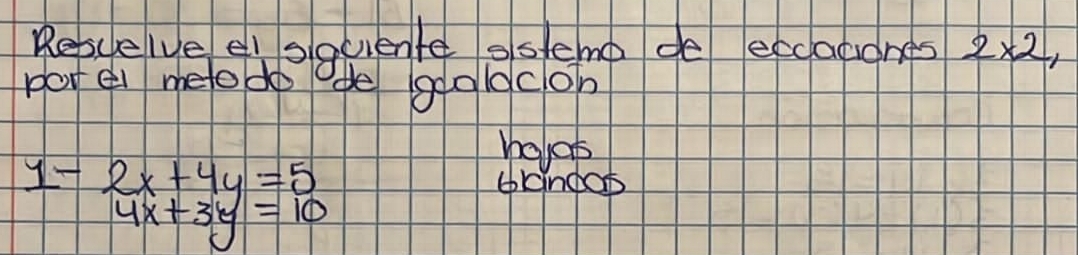 Resuelve el siguiente sistema de eccaciones 2x2,
por el metodo de igualación
hojas
blancas
1- 2x+4y=5
4x+3y=10